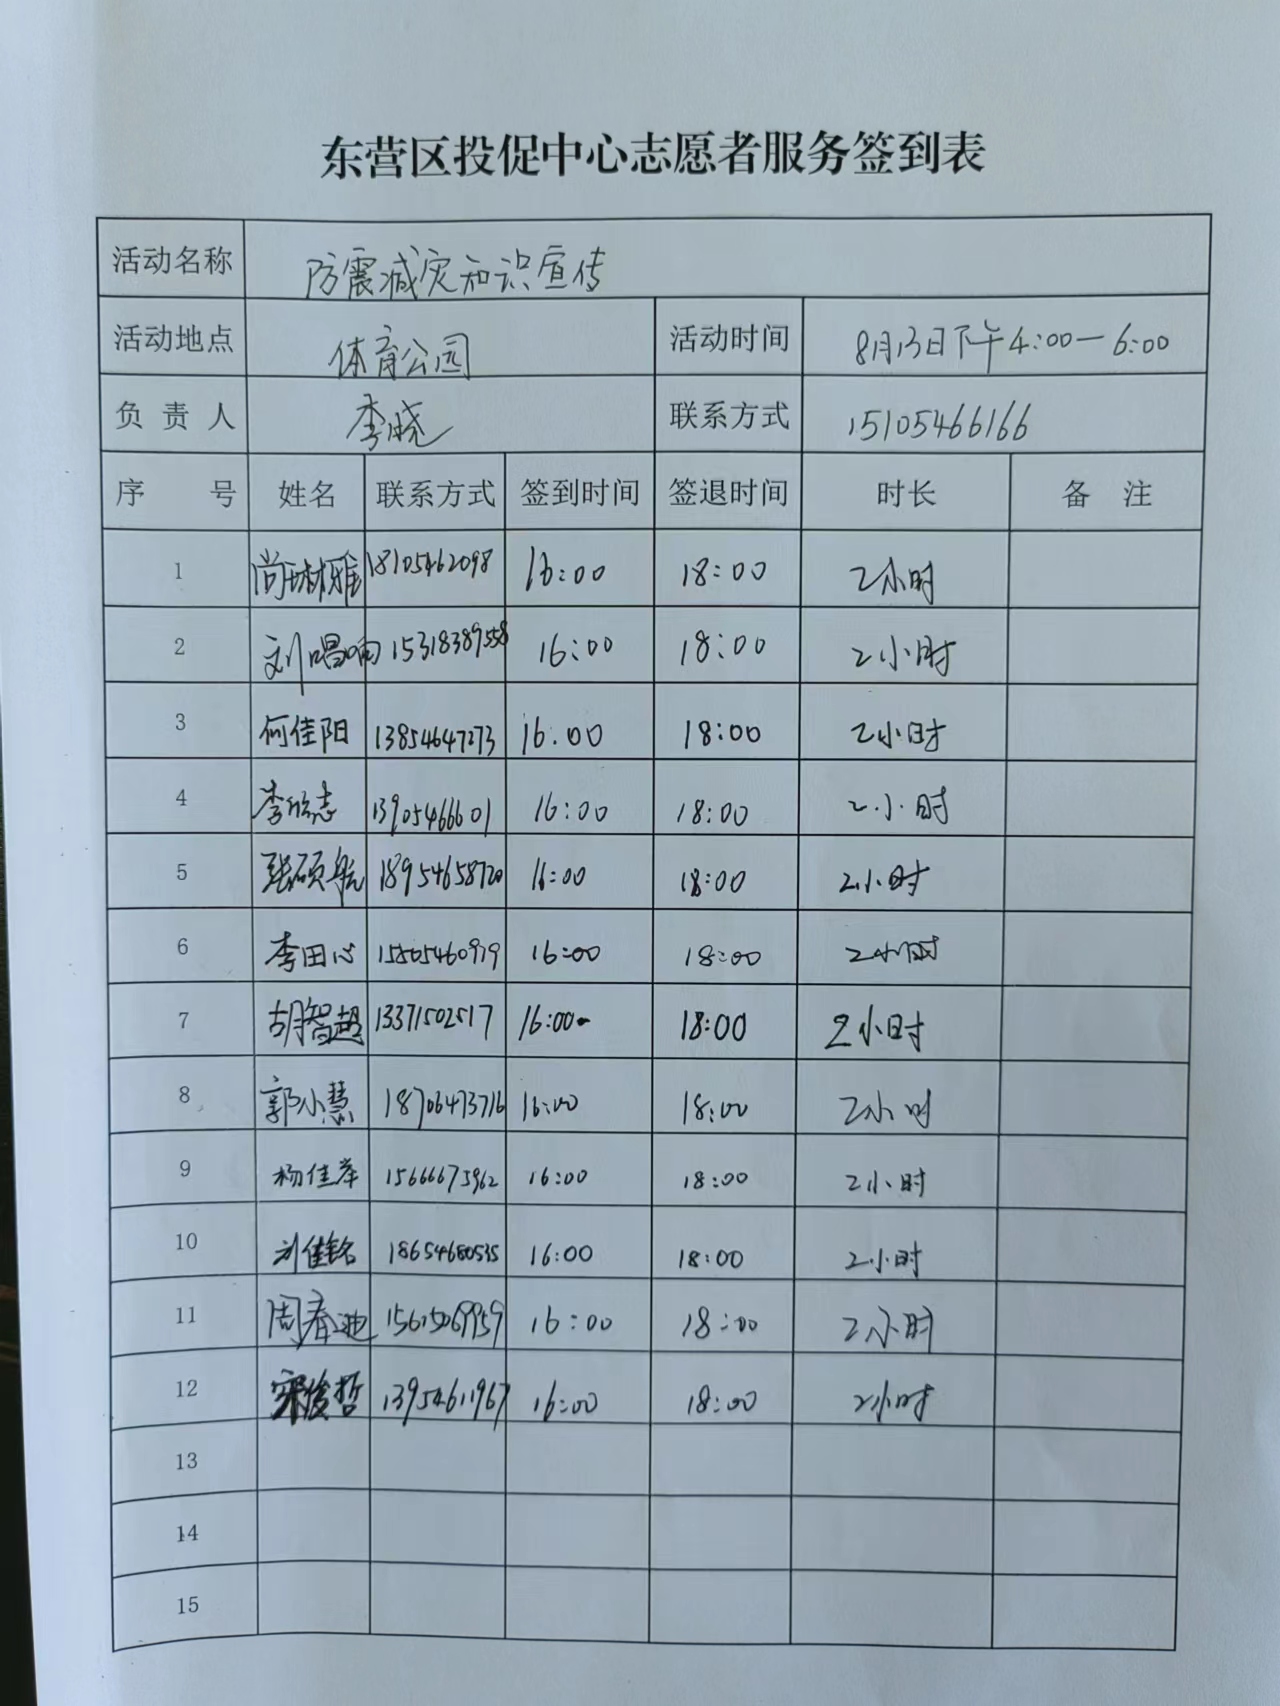 东营区投促中心志愿者服务签到表
活动名称 防震减灾知识宣传
活动地点 体育公园 活动时间 8月13日下午4:00—6:00
负责人 李晓 联系方式 15105466166
序号 姓名 联系方式 签到时间 签退时间 时长 备注
1 尚琳雅 18105462098 16:00 18:00 2小时
2 刘唱响 15318389558 16:00 18:00 2小时
3 何佳阳 13854647273 16.00 18:00 2小时
4 李 志 13905466601 16:00 18:00 2小时
5 张硕航 18954658720 16:00 18:00 2小时
6 李田心 16:00 18:00 2小时
7 胡智超 13371502517 16:00 18:00 2小时
8 郭小慧 18706473716 16:00 18:00 2小时
9 杨佳 15666675962 16:00 18:00 2小时
10 刘佳铭 18654680535 16:00 18:00 2小时
11 周春 15615069959 16:00 18:00 2小时
12 宋俊哲 13954611967 16:00 18:00 2小时
13
14
15